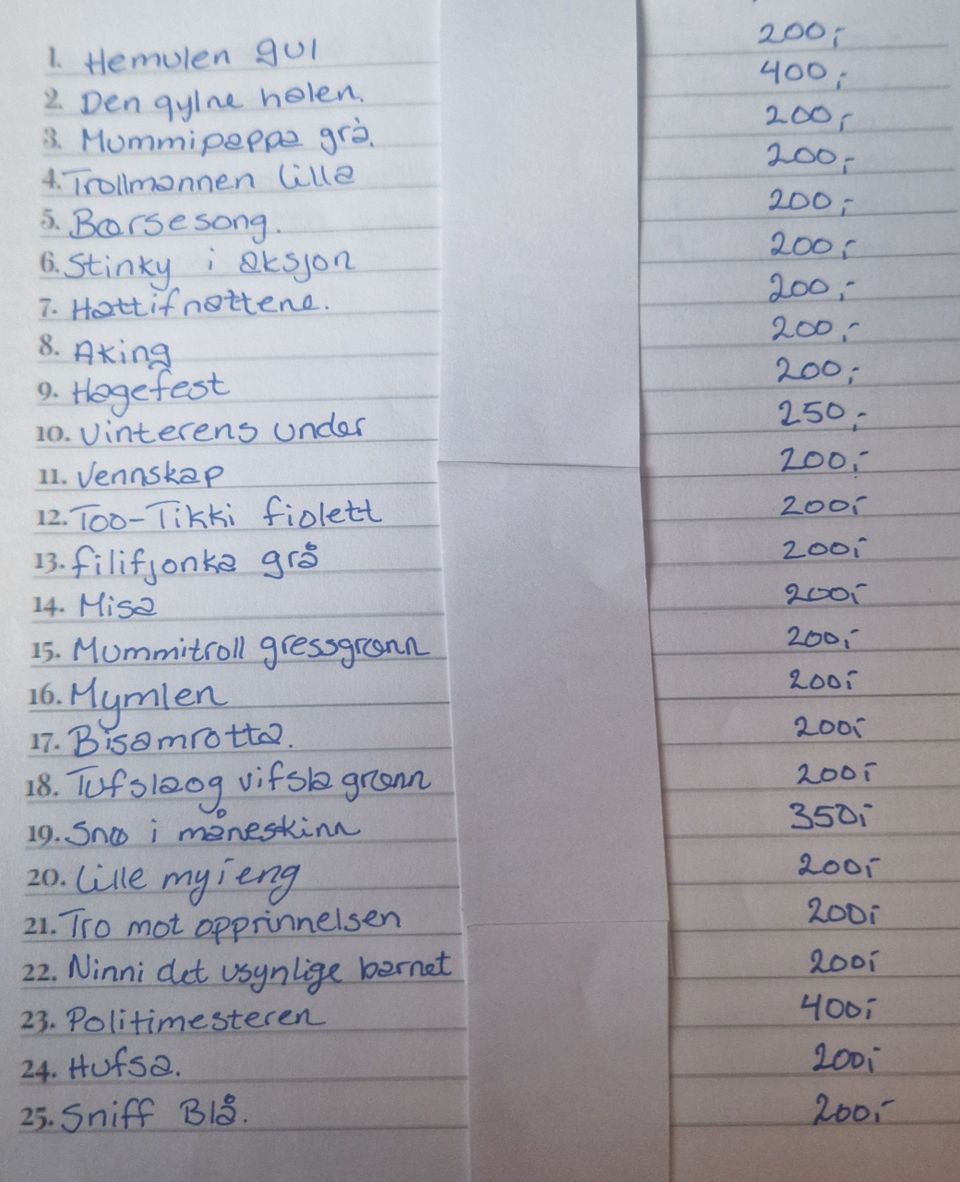 1. Hemulen gul 200,-
2. Den gylne halen. 400,-
3. Mummipappa grå. 200,-
4. Trollmannen lilla 200,-
5. Barsesong. 200,-
6. Stinky i aksjon 200,-
7. Hattifnattene. 200,-
8. Aking 200,-
9. Hagefest 200,-
10. Vinterens under 250,-
11. Vennskap 200,-
12. Too-Tikki fiolett 200,-
13. filifjonka grå 200,-
14. Misa 200,-
15. Mummitroll gressgrønn 200,-
16. Mymlen 200,-
17. Bisamrotta. 200,-
18. Tufsla og vifsla grønn 200,-
19. Snø i måneskinn 350,-
20. Lille my i eng 200,-
21. Tro mot opprinnelsen 200,-
22. Ninni det usynlige barnet 200,-
23. Politimesteren 400,-
24. Hufsa. 200,-
25. Sniff Blå. 200,-